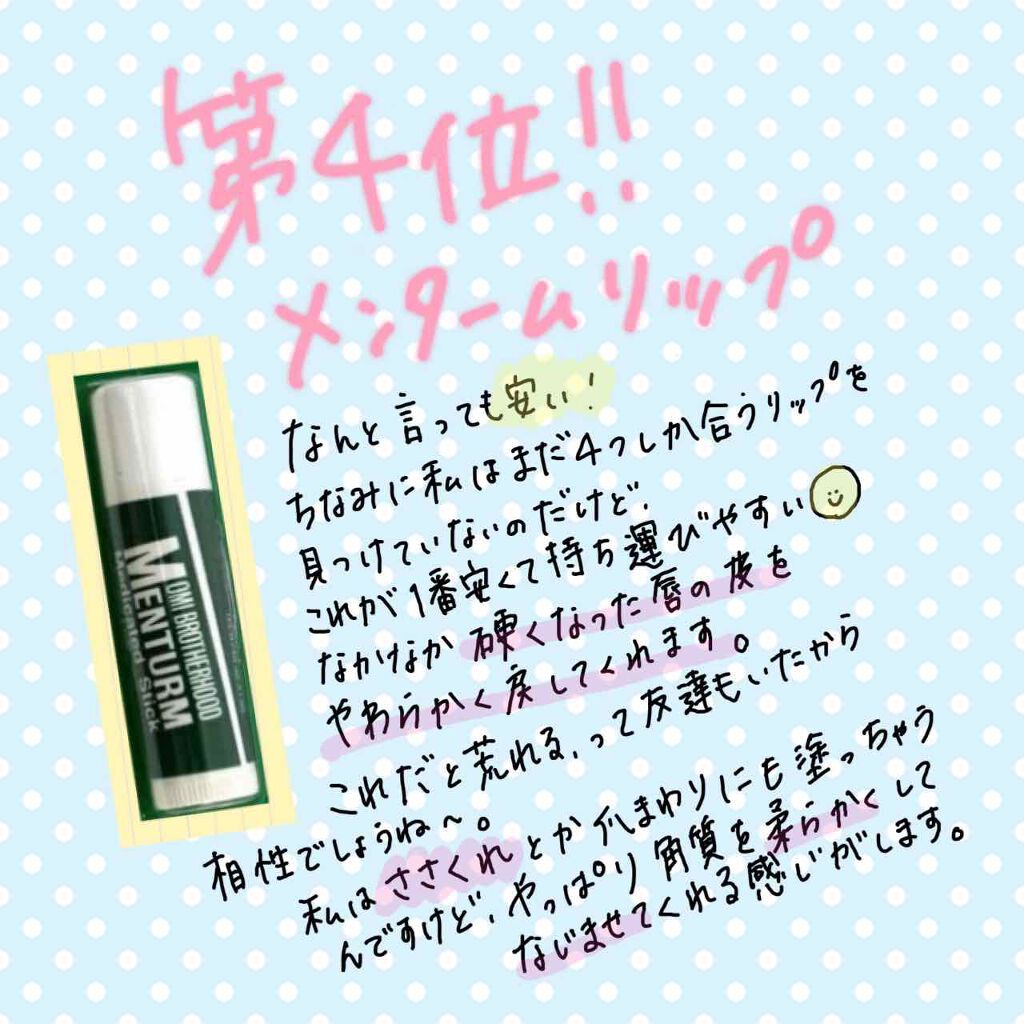 第4位!!
メンタームリップ
なんと言っても安い!
ちなみに私はまだ4つしか合うリップを
見つけていないのだけど、
これが1番安くて持ち運びやすい
なかなか硬くなった唇の皮を
やわらかく戻してくれます。
これだと荒れる、って友達もいたから
相性でしょうね〜。
私はささくれとか爪まわりにも塗っちゃう
んですけど、やっぱり角質を柔らかくして
なじませてくれる感じがします。
OMI BROTHERHOOD
MENTURM
Medicated Stick